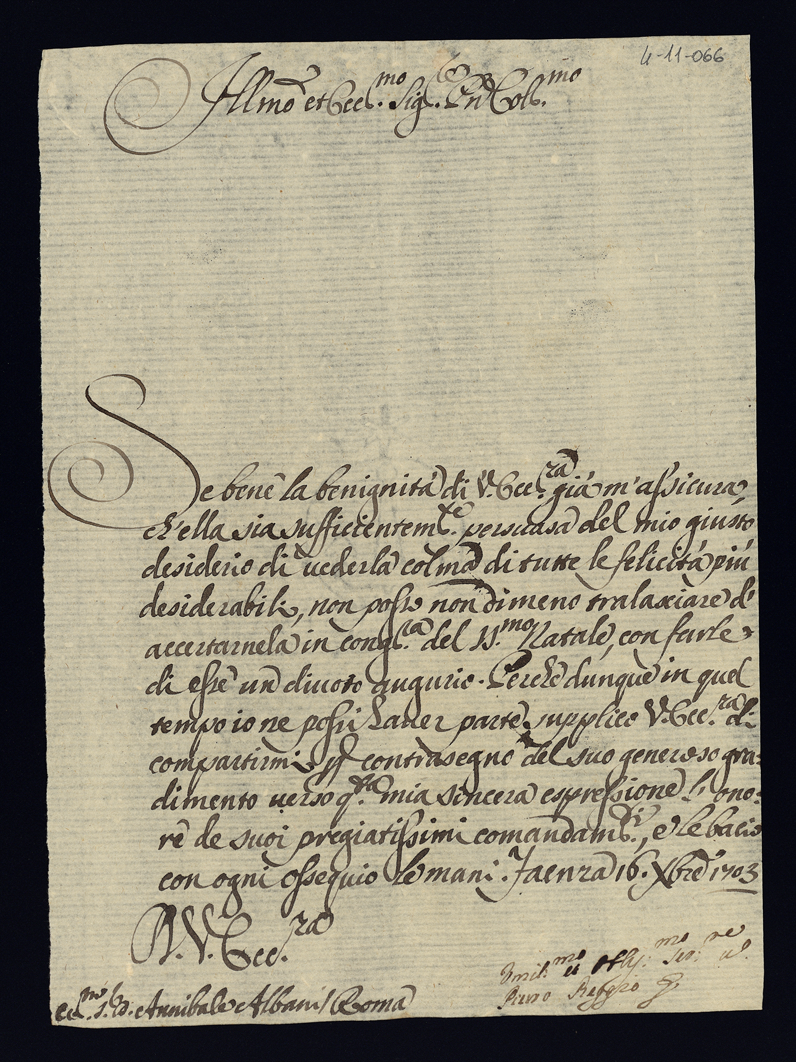 4-11-066
Illmo et Ecc.mo Sig.re Pñ Col.mo
Se bene la benignità di V. Ecc.za già m'assicura,
ch'ella sia sufficientem.te persuasa del mio giusto
desiderio di vederla colma di tutte le felicità più
desiderabili, non posso non dimeno tralasciare d'
accertarnela in cong.ra del SS.mo Natale, con farle
di esse un divoto augurio. Perche dunque in quel
tempo io ne possi haver parte, supplico V. Ecc.za di
compartirmi contrasegno del suo generoso gra-
dimento verso q.ta mia sincera espressione l'ono-
re de suoi pregiatissimi comandam.ti, e le bacio
con ogni ossequio le mani. Faenza 16. Xbre 1703
D. V. Ecc.za
Ecc.mo S. D. Annibale Albani / Roma
Umil.mo et Obl.mo Ser.re